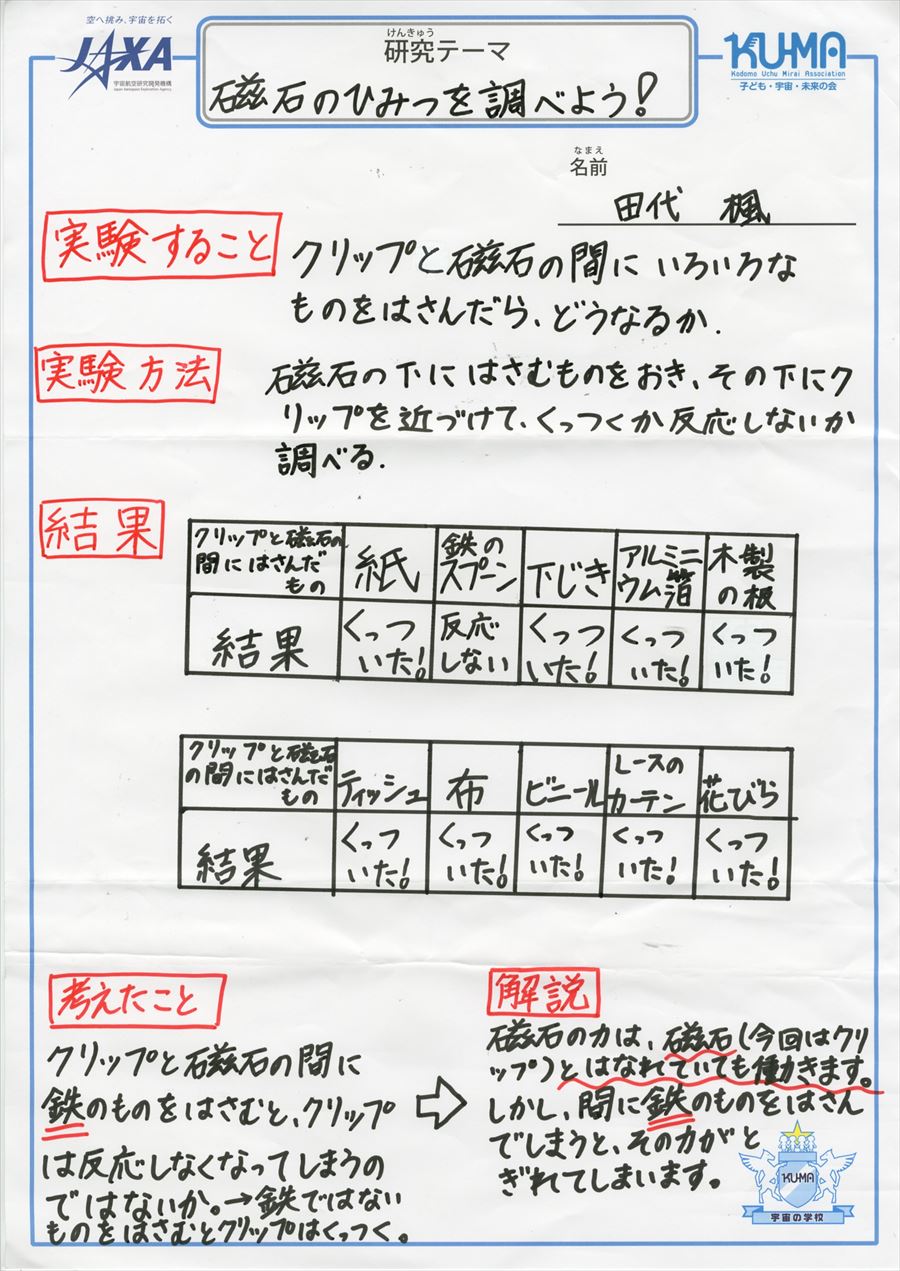 空へ挑み、宇宙を拓く
JAXA
宇宙航空研究開発機構
Japan Aerospace Exploration Agency
けんきゅう
研究テーマ
磁石のひみつを調べよう!
KU-MA
Kodomo Uchu Mirai Association
子ども・宇宙・未来の会
なまえ
名前
田代 楓
実験すること
クリップと磁石の間にいろいろな
ものをはさんだら、どうなるか.
実験方法
磁石の下にはさむものをおき、その下にク
リップを近づけて、くっつくか反応しないか
調べる.
結果
クリップと磁石の
間にはさんだ
もの
紙
鉄の
スプーン
下じき
アルミニ
ウム箔
木製
の板
結果
くっつ
いた!
反応
しない
くっつ
いた!
くっつ
いた!
くっつ
いた!
クリップと磁石
の間にはさんだ
もの
ティッシュ
布
ビニール
レースの
カーテン
花びら
結果
くっつ
いた!
くっつ
いた!
くっつ
いた!
くっつ
いた!
くっつ
いた!
考えたこと
クリップと磁石の間に
鉄のものをはさむと、クリップ
は反応しなくなってしまうの
ではないか。→鉄ではない
ものをはさむとクリップはくっつく。
解説
磁石の力は、磁石(今回はクリ
ップ)とはなれていても働きます。
しかし、間に鉄のものをはさん
でしまうと、その力がと
ぎれてしまいます。
KU-MA
宇宙の学校